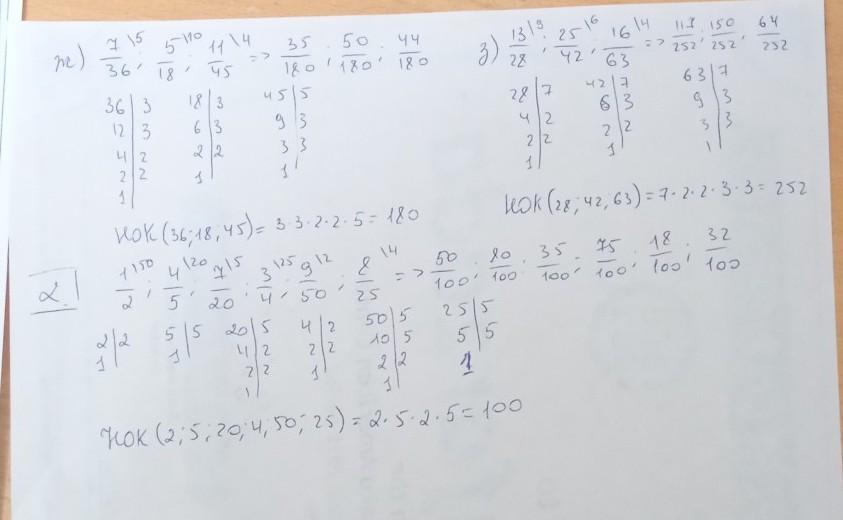 ж) 7/36 \5; 5/18 \10; 11/45 \4 => 35/180; 50/180; 44/180
36 | 3
12 | 3
4 | 2
2 | 2
1
18 | 3
6 | 3
2 | 2
1
45 | 5
9 | 3
3 | 3
1
НОК (36; 18; 45) = 3·3·2·2·5 = 180
з) 13/28 \9; 25/42 \6; 16/63 \4 => 117/252; 150/252, 64/252
28 | 7
4 | 2
2 | 2
1
42 | 7
6 | 3
2 | 2
1
63 | 7
9 | 3
3 | 3
1
НОК (28; 42, 63) = 7·2·2·3·3 = 252
2.
1/2 \50; 4/5 \20; 7/20 \5; 3/4 \25; 9/50 \2; 8/25 \4 => 50/100; 80/100; 35/100; 75/100; 18/100; 32/100
2 | 2
1
5 | 5
1
20 | 5
4 | 2
2 | 2
1
4 | 2
2 | 2
1
50 | 5
10 | 5
2 | 2
1
25 | 5
5 | 5
1
НОК (2; 5; 20; 4, 50; 25) = 2·5·2·5 = 100